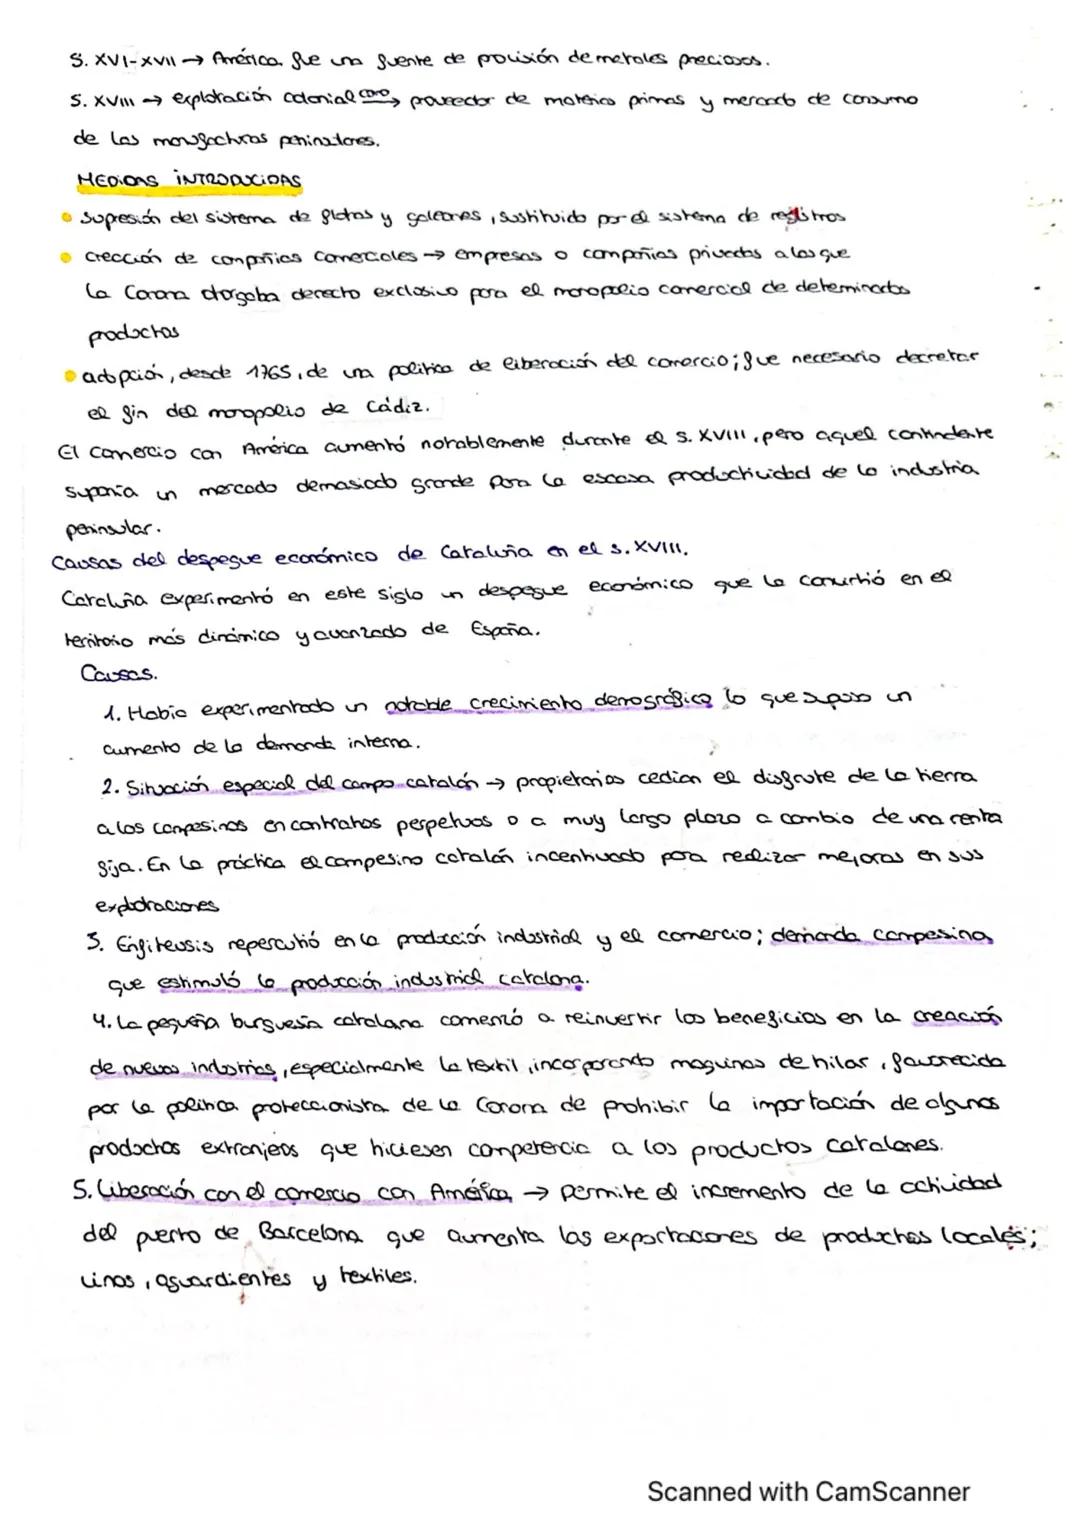 S. XVI-XVII → América fue una fuente de provisión de metales preciosos.
S. XVIII → explotación colonial como proveedor de materias primas y mercado de consumo
de las manufacturas peninsulares.
MEDIDAS INTRODUCIDAS
• Supresión del sistema de flotas y galeones, sustituido por el sistema de registros
• creección de compañías comerciales → empresas o compañías privadas a las que
la Corona otorgaba derecho exclusivo para el monopolio comercial de determinados
productos
• adopción, desde 1765, de una política de liberación del comercio; fue necesario decretar
el fin del monopolio de Cádiz.
El comercio con América aumentó notablemente durante el s. XVIII, pero aquel continente
suponía un mercado demasiado grande para la escasa productividad de la industria
peninsular.
Causas del despegue económico de Cataluña en el s. XVIII.
Cataluña experimentó en este siglo un despegue económico que la convirtió en el
territorio más dinámico y avanzado de España.
Causas.
1. Había experimentado un notable crecimiento demográfico lo que supuso un
aumento de la demanda interna.
2. Situación especial del campo catalán → propietarios cedían el disfrute de la tierra
a los campesinos en contratos perpetuos o a muy largo plazo a cambio de una renta
fija. En la práctica el campesino catalán incentivado para realizar mejoras en sus
explotaciones
3. Enfiteusis repercutió en la producción industrial y el comercio; demanda campesina
que estimuló la producción industrial catalana.
4. La pequeña burguesía catalana comenzó a reinvertir los beneficios en la creación
de nuevas industrias, especialmente la textil, incorporando maquinas de hilar, favorecida
por la política proteccionista de la Corona de prohibir la importación de algunos
productos extranjeros que hiciesen competencia a los productos catalanes.
5. Liberación con el comercio con América → permite el incremento de la actividad
del puerto de Barcelona que aumenta las exportaciones de productos locales;
vinos, aguardientes y textiles.
Scanned with CamScanner